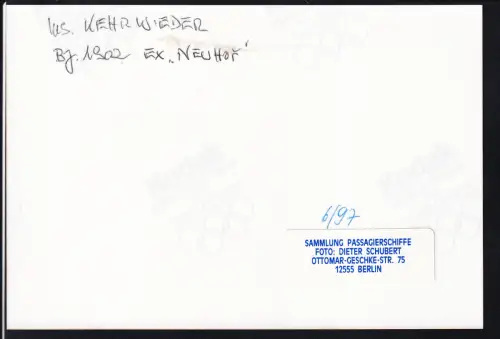 MS. KEHRWIEDER
Bj. 1902 EX „NEUHOF“
6/97
SAMMLUNG PASSAGIERSCHIFFE
FOTO: DIETER SCHUBERT
OTTOMAR-GESCHKE-STR. 75
12555 BERLIN